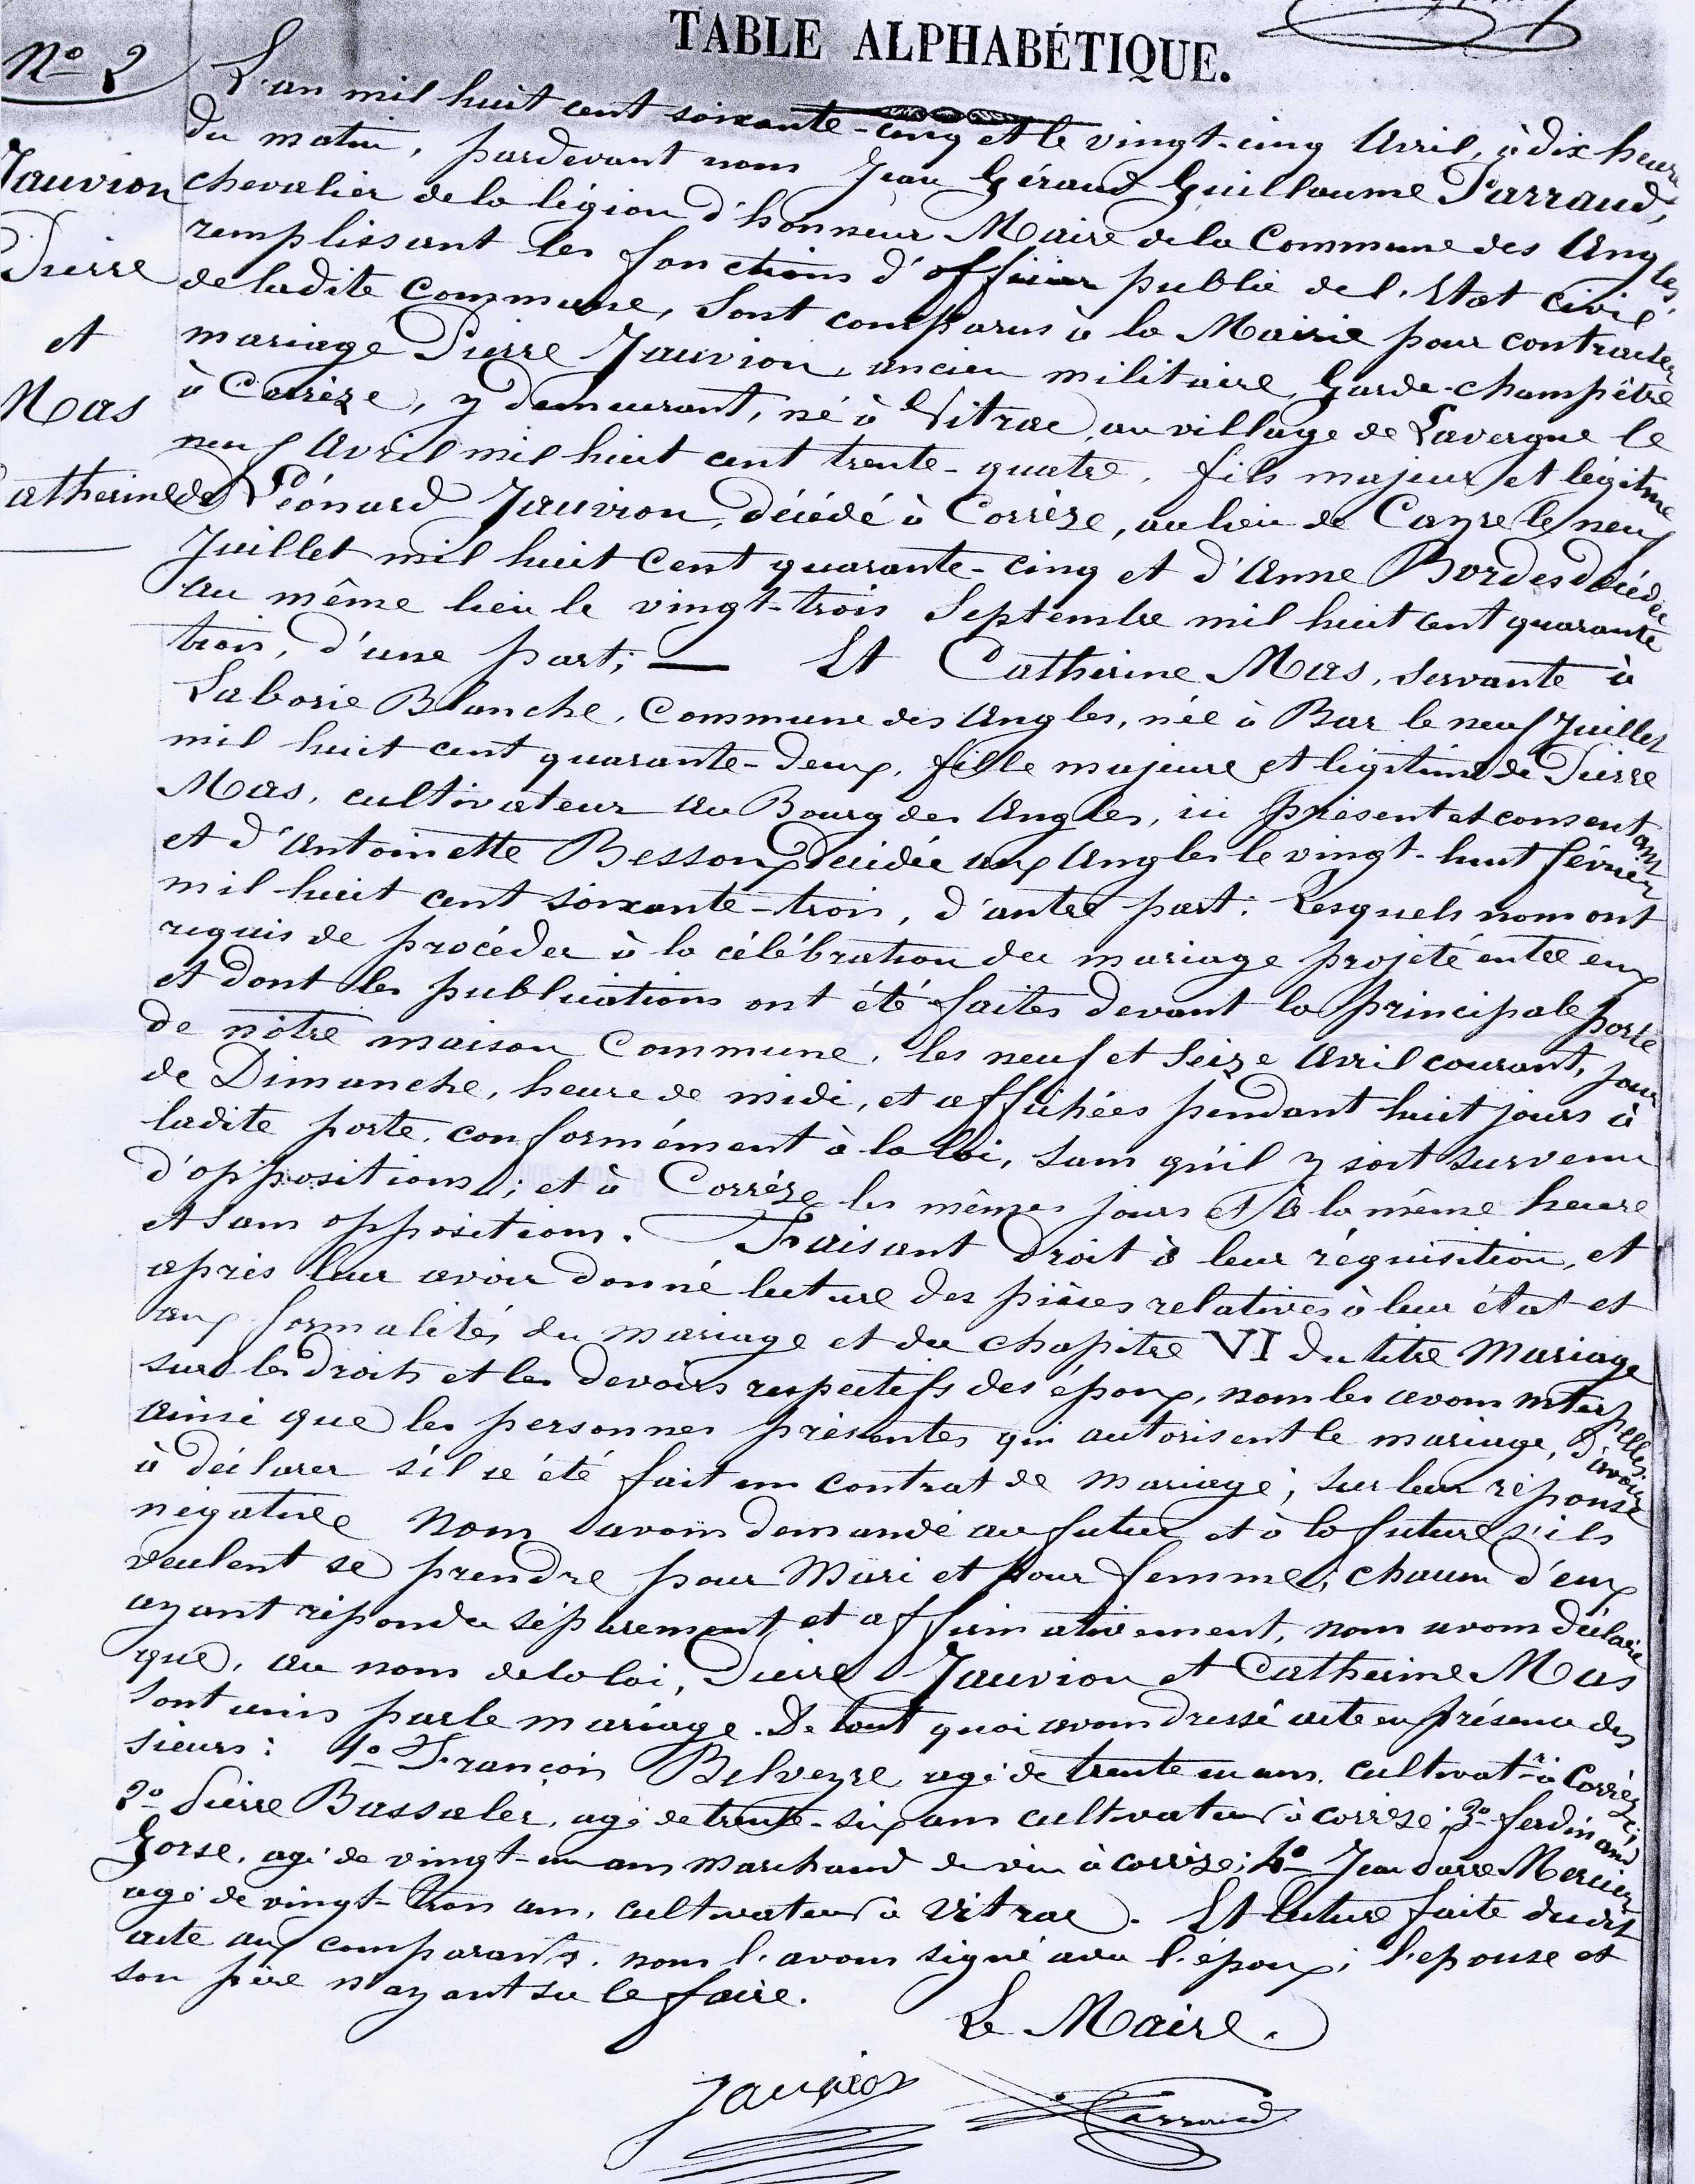 TABLE ALPHABÉTIQUE.
Nº 2
Jauvion
Pierre
et
Mas
Catherine
L'an mil huit cent soixante-cinq et le vingt-cinq Avril, à dix heures
du matin, pardevant nous Jean Géraud Guillaume Parraud,
chevalier de la légion d'honneur Maire de la Commune des Angles,
remplissant les fonctions d'officier public de l'Etat civil
de ladite commune, sont comparus à la Mairie pour contracter
mariage Pierre Jauvion, ancien militaire, Garde-champêtre
à Corrèze, y demeurant, né à Vitrac, au village de Lavergne le
neuf Avril mil huit cent trente-quatre, fils majeur et légitime
de Léonard Jauvion, décédé à Corrèze, au lieu de Cayre le neuf
Juillet mil huit cent quarante-cinq et d'Anne Bordes décédée
au même lieu le vingt-trois Septembre mil huit cent quarante
trois, d'une part; — Et Catherine Mas, servante à
Laborie Blanche, Commune des Angles, née à Bar le neuf Juillet
mil huit cent quarante-deux, fille majeure et légitime de Pierre
Mas, cultivateur au Bourg des Angles, ici présent et consentant
et d'Antoinette Bessoux décédée aux Angles le vingt-huit février
mil huit cent soixante-trois, d'autre part: Lesquels nous ont
requis de procéder à la célébration du mariage projeté entre eux
et dont les publications ont été faites devant la principale porte
de nôtre maison Commune, les neuf et seize Avril courant, jour
de Dimanche, heure de midi, et affichées pendant huit jours à
ladite porte, conformément à la loi, sans qu'il y soit survenu
d'oppositions; et à Corrèze les mêmes jours et à la même heure
et sans oppositions. Faisant droit à leur réquisition, et
après leur avoir donné lecture des pièces relatives à leur état et
aux formalités du mariage et du chapitre VI du titre Mariage
sur les droits et les devoirs respectifs des époux, nous les avons interpellés
ainsi que les personnes présentes qui autorisent le mariage, d'avoir
à déclarer s'il a été fait un contrat de mariage; sur leur réponse
négative Nous avons demandé au futur et à la future s'ils
veulent se prendre pour Mari et pour femme; chacun d'eux
ayant répondu séparement et affirmativement, nous avons déclaré
que, au nom de la loi, Pierre Jauvion et Catherine Mas
sont unis par le mariage. De tout quoi avons dressé acte en présence des
sieurs: 1º François Belveyre agé de trente un ans, cultivatr à Corrèze;
2º Pierre Bassaler, agé de trente-six ans cultivateur à corrèze; 3º ferdinand
Gorse, agé de vingt-un ans marchand de vin à corrèze; 4º Jean Mercier
agé de vingt-trois ans, cultivateur à Vitrac. Et lecture faite dudit
acte aux comparants, nous l'avons signé avec l'époux; l'epouse et
son père n'ayant su le faire.
Le Maire.
Jauvion
Parraud